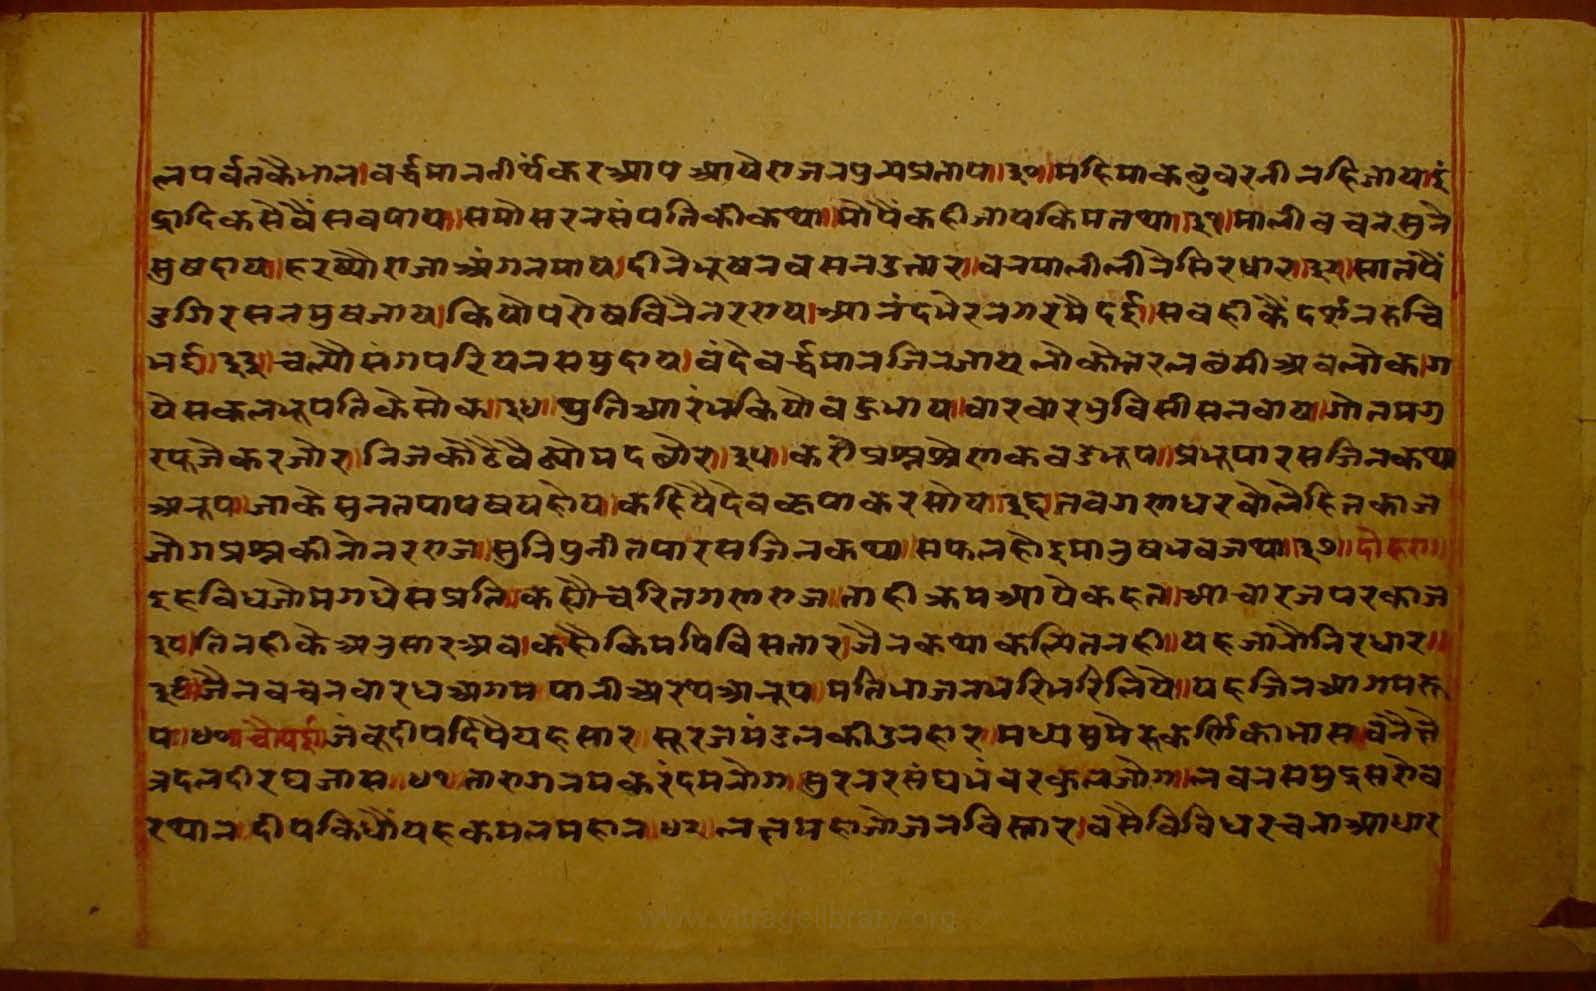 लपर्वतकैभाल।वर्द्धमानतीर्थंकरआपआयेराजनपुन्यप्रताप।३०।महिमाकछुवरनीनहिजाय।इं
द्रादिकसेवैंसवपाय।समोसरनसंपतिकीकथा।मोपैंकहीजायकिमतथा।३१।मालीवचनसुने
सुषदाय।हरष्यौराजाअंगनमाय।दीनेभूषनवसनउतार।वनपालीलीनेसिरधार।३२।सातपैं
डगिरसनमुषजाय।कियौपरोषविनैनरराय।आनंदभेरनगरमैदई।सवहीकैंदर्शनरुचि
भई।३३।चल्यौसंगपरियनसमुदाय।वंदेवर्द्धमानजिनजाय।लोकोत्तरलछमीअवलोक।ग
येसकलभूपतिकेसोक।३४।थुतिआरंभकियोवहुभाय।वारवारभुविसीसनवाय।गौतमगु
रपूजेकरजोर।निजकोठैवैठ्योमदछोर।३५।करीप्रश्नश्रेराकवडभूप।प्रभूपारसजिनकथा
अनूप।जाकेसुनतपापषयहोय।कहियैदेवकृपाकरसोय।३६।तवगराधरवोलेहितकाज
जोगप्रश्नकीनोनरराज।सुनिपुनीतपारसजिनकथा।सफलहोइमानुषभवजथा।३७।दोहरा॥
इहविधजोमगधेसप्रति।कह्यौचरितगराराज।ताहीक्रमआयेकहत।आचारजपरकाज
३८।तिनहीकेअनुसारअव।कहौंकिमपिविसतार।जैनकथाकल्पितनही।यहजानौनिरधार॥
३९।जैनवचनवारधअगम।पानीअरथअनूप।मतिभाजनभरिभरिलिये।यहजिनआगमरू
प॥४०॥चौपई॥जंबूदीपदिपैयहसार।सूरजमंडलकीउनहार।मध्यसुमेरुकर्णिकाभास।वनेछे
त्रदलदीरघजास॥४१॥तारागनमकरंदमनोग।सुरनरसंघभंवरकुलजोग।लवनसमुद्रसरोव
रथान।दीपकिधौंयहकमलमहान।४२।लछमहाजोजनविस्तार।वसैविविधरचनाआधार
www.vitragelibrary.org